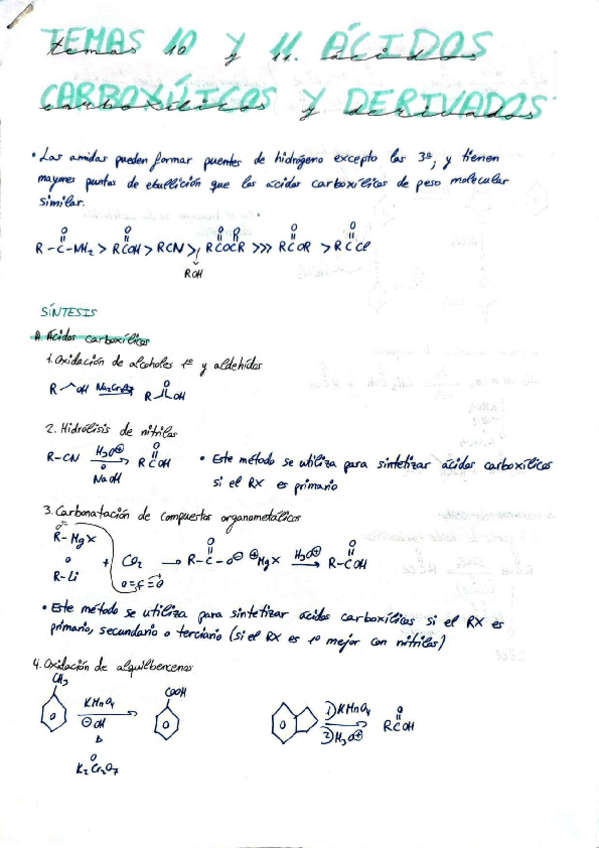 TEMAS 10 Y 11. ÁCIDOS
temas 10 y 11. ácidos
CARBOXÍLICOS Y DERIVADOS
carboxílicos y derivados
• Las amidas pueden formar puentes de hidrógeno excepto las 3º, y tienen
mayores puntos de ebullición que los ácidos carboxílicos de peso molecular
similar.
O O O R O O
R-C-NH2 > RCOH > RCN > RCOCR >>> RCOR > RCCl
ROH
SÍNTESIS
A. Ácidos carboxílicos
1. Oxidación de alcoholes 1º y aldehídos
R OH Na2Cr2O7 R O OH
2. Hidrólisis de nitrilos
R-CN H3O⊕ ó NaOH RCOH O
• Este método se utiliza para sintetizar ácidos carboxílicos
si el RX es primario
3. Carbonatación de compuestos organometálicos
R-MgX
ó + CO2 → R-C-O⊖ ⊕MgX H3O⊕ → R-COH
R-Li O=C=O
• Este método se utiliza para sintetizar ácidos carboxílicos si el RX es
primario, secundario o terciario (si el RX es 1º mejor con nitrilos)
4. Oxidación de alquilbencenos
CH3 COOH
KMnO4 1) KMnO4 O
⊖OH 2) H3O⊕ RCOH
Δ
ó
K2Cr2O7